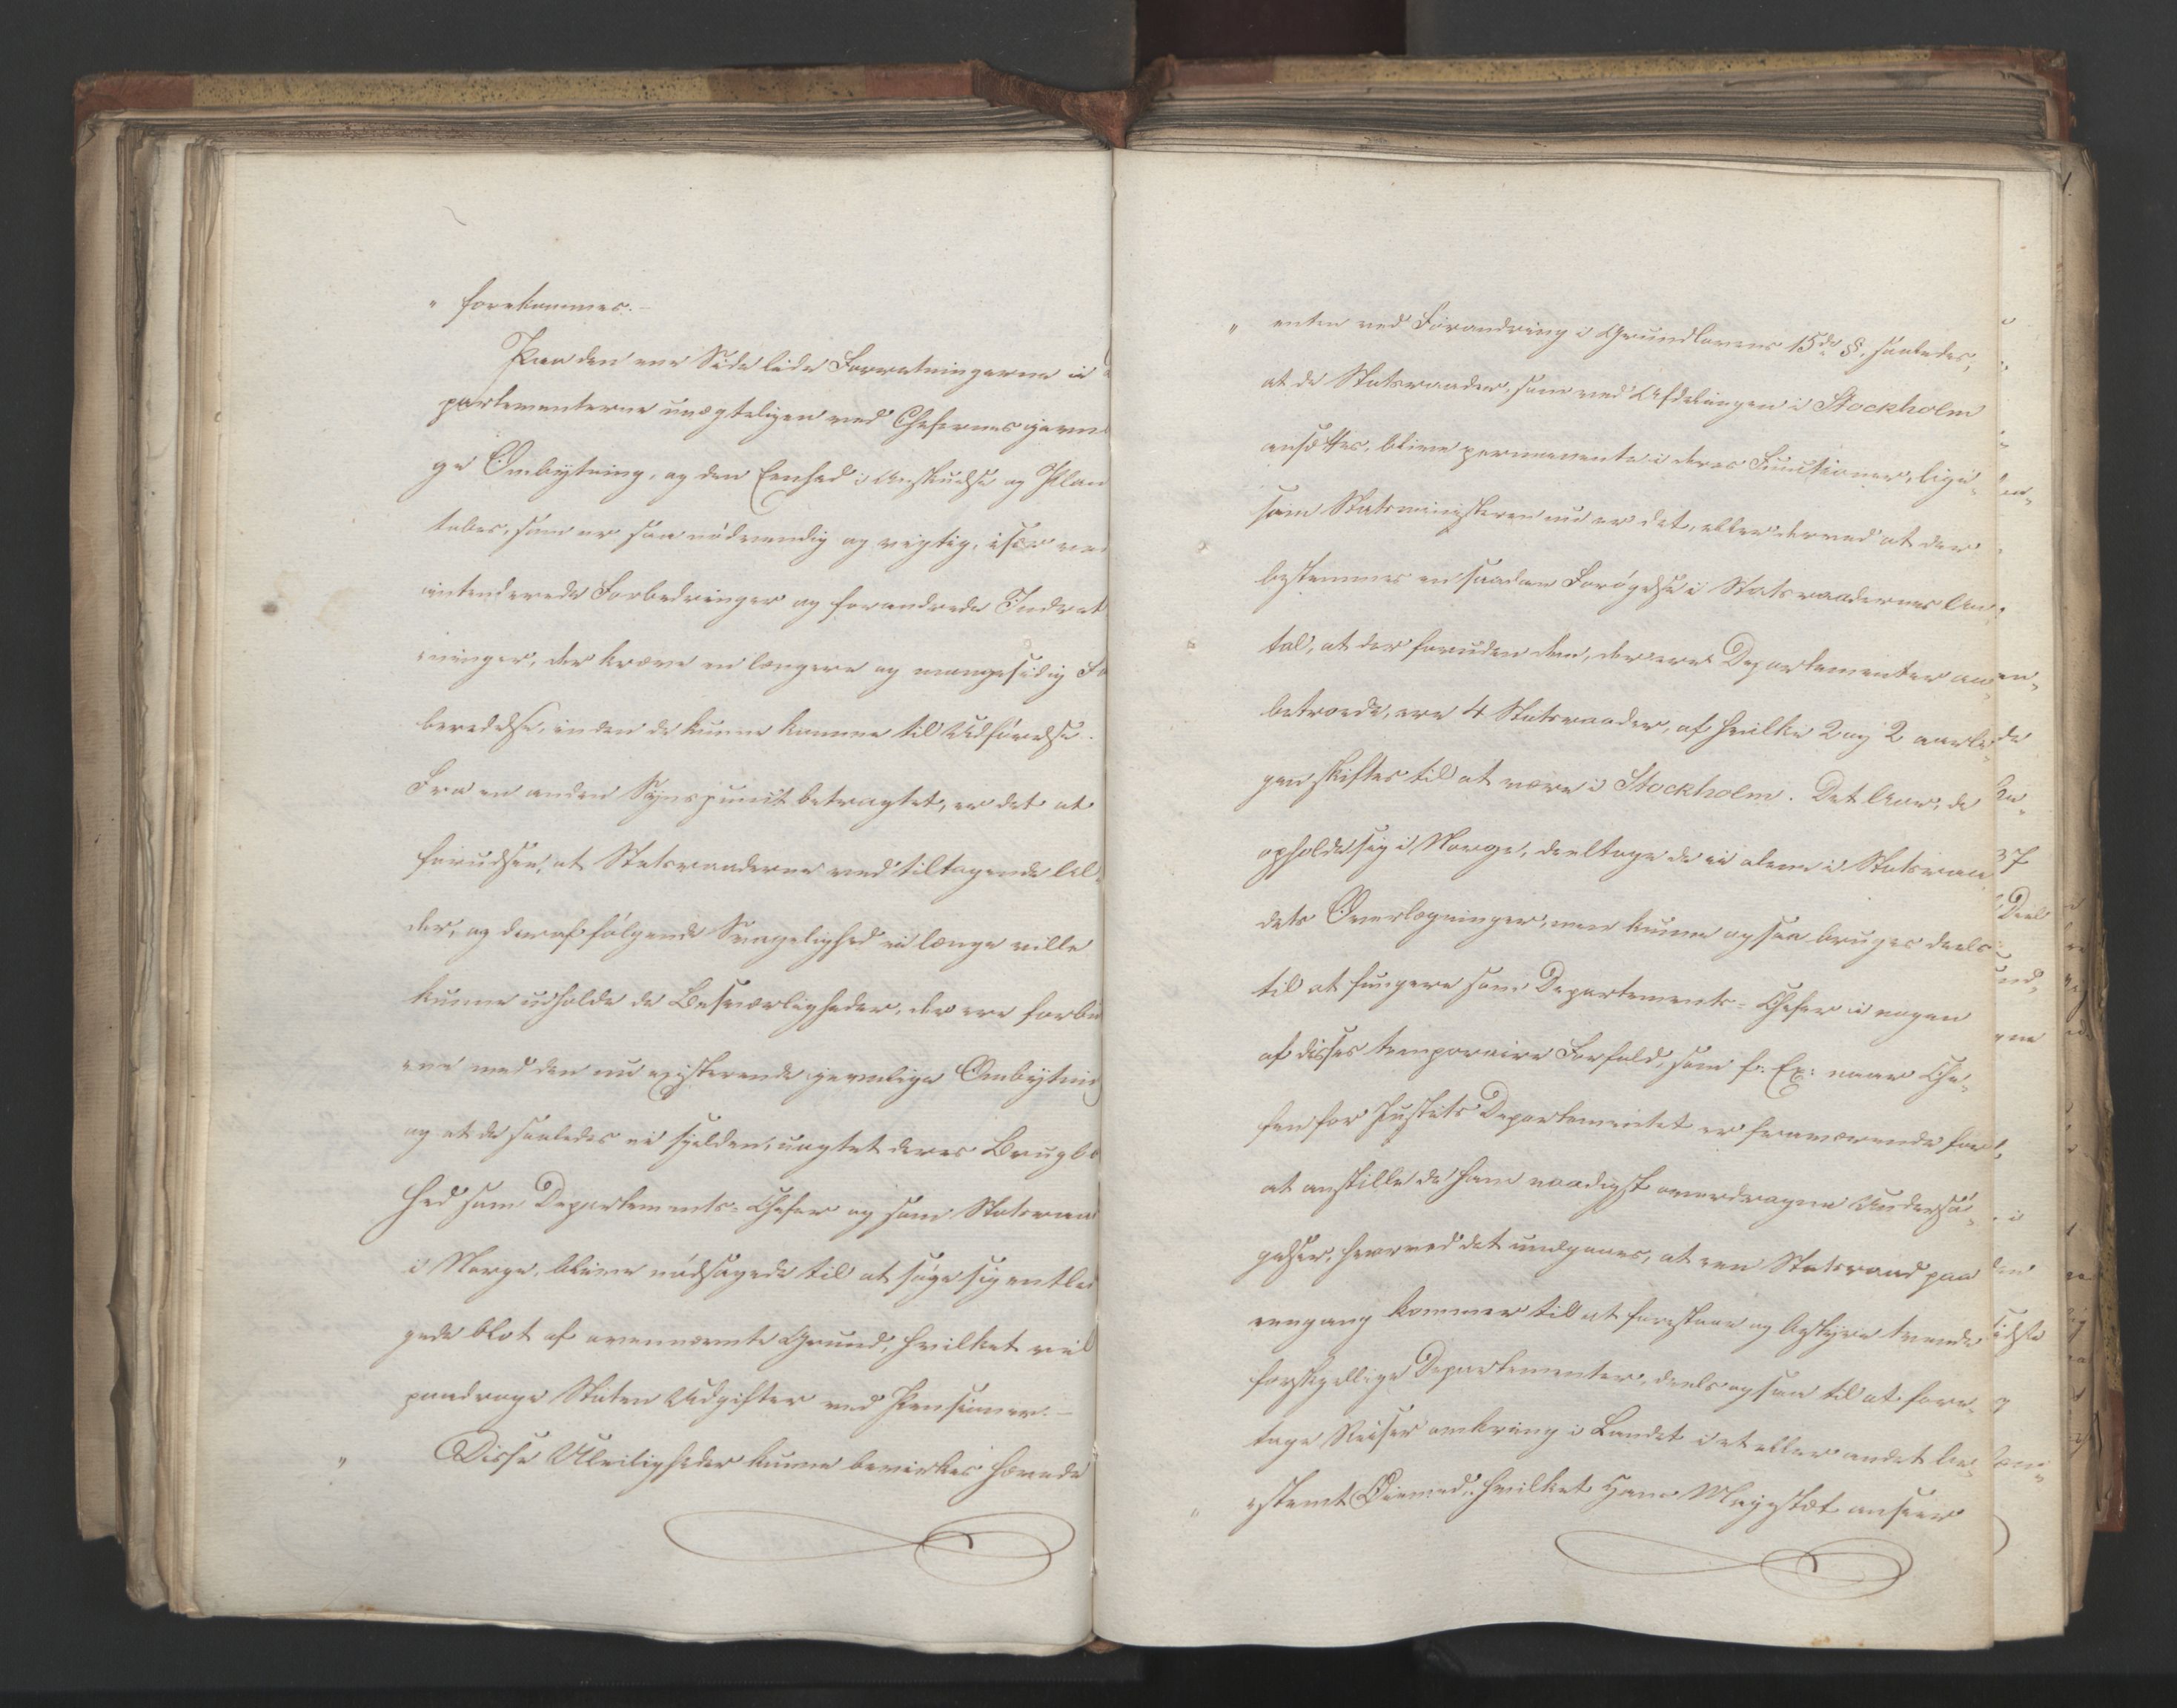 " forekommes.-
Paa den ene Side lide Forretningerne i
partementerne unægteligen ved Chefernes jevn
ge Ombytning, og den Eenhed i Anskuelse og Plan
tabes, som er saa nödvendig og vigtig, især ved
intenderede Forbedringer og forandrede Indret
ninger, der kræve en længere og mangesidig Fo
beredelse, inden de kunne komme til Udförelse.
Fra en anden Synspunct betragtet, er det at
forudsee, at Statsraaderne ved tiltagende Al-
der, og deraf fölgende Svagelighed ei længe ville
kunne udholde de Besværligheder, der ere forbu
ene med den nu existerende jevnlige Ombytning
og at de saaledes ei sjelden, uagtet deres Brugba
hed som Departements-Chefer og som Statsraad
i Norge, blive nödsagede til at söge sig entledi
gede blot af ovennævnte Grund, hvilket vil
paadrage Staten Udgifter ved Pensioner.-
" Disse Uleiligheder kunne bevirkes hævede
" enten ved Forandring i Grundlovens 15de §, saaledes,
at de Statsraader, som ved Afdelingen i Stockholm
ansættes, blive permanente i deres Functioner, lige-
som Statsministeren nu er det, eller derved at der
bestemmes en saadan Forögelse i Statsraadernes An-
tal, at der foruden dem, der ere Departementer an-
betroede, ere 4 Statsraader, af hvilke 2 og 2 aarli-
gen skiftes til at være i Stockholm. Det Aar, de
opholde sig i Norge, deeltage de ei alene i Statsraa-
dets Overlægninger, men kunne ogsaa bruges deels
til at fungere som Departements-Chefer i nogen
af disses temporaire Forfald, som f. Ex: naar Che-
fen for Justits Departementet er fraværende for
at anstille de ham naadigst overdragne Undersö-
gelser, hvorved det undgaaes, at een Statsraad paa
eengang kommer til at forestaae og bestyre tvende
forskjellige Departementer, deels ogsaa til at fore-
tage Reiser omkring i Landet i et eller andet be-
" stemt Öiemed, hvilket Hans Majestæt anseer